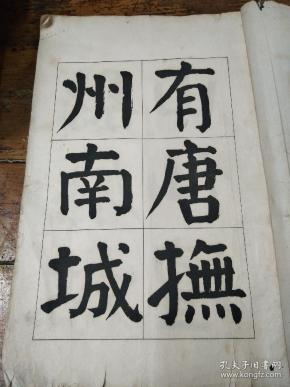 有唐撫
州南城
孔夫子旧书网